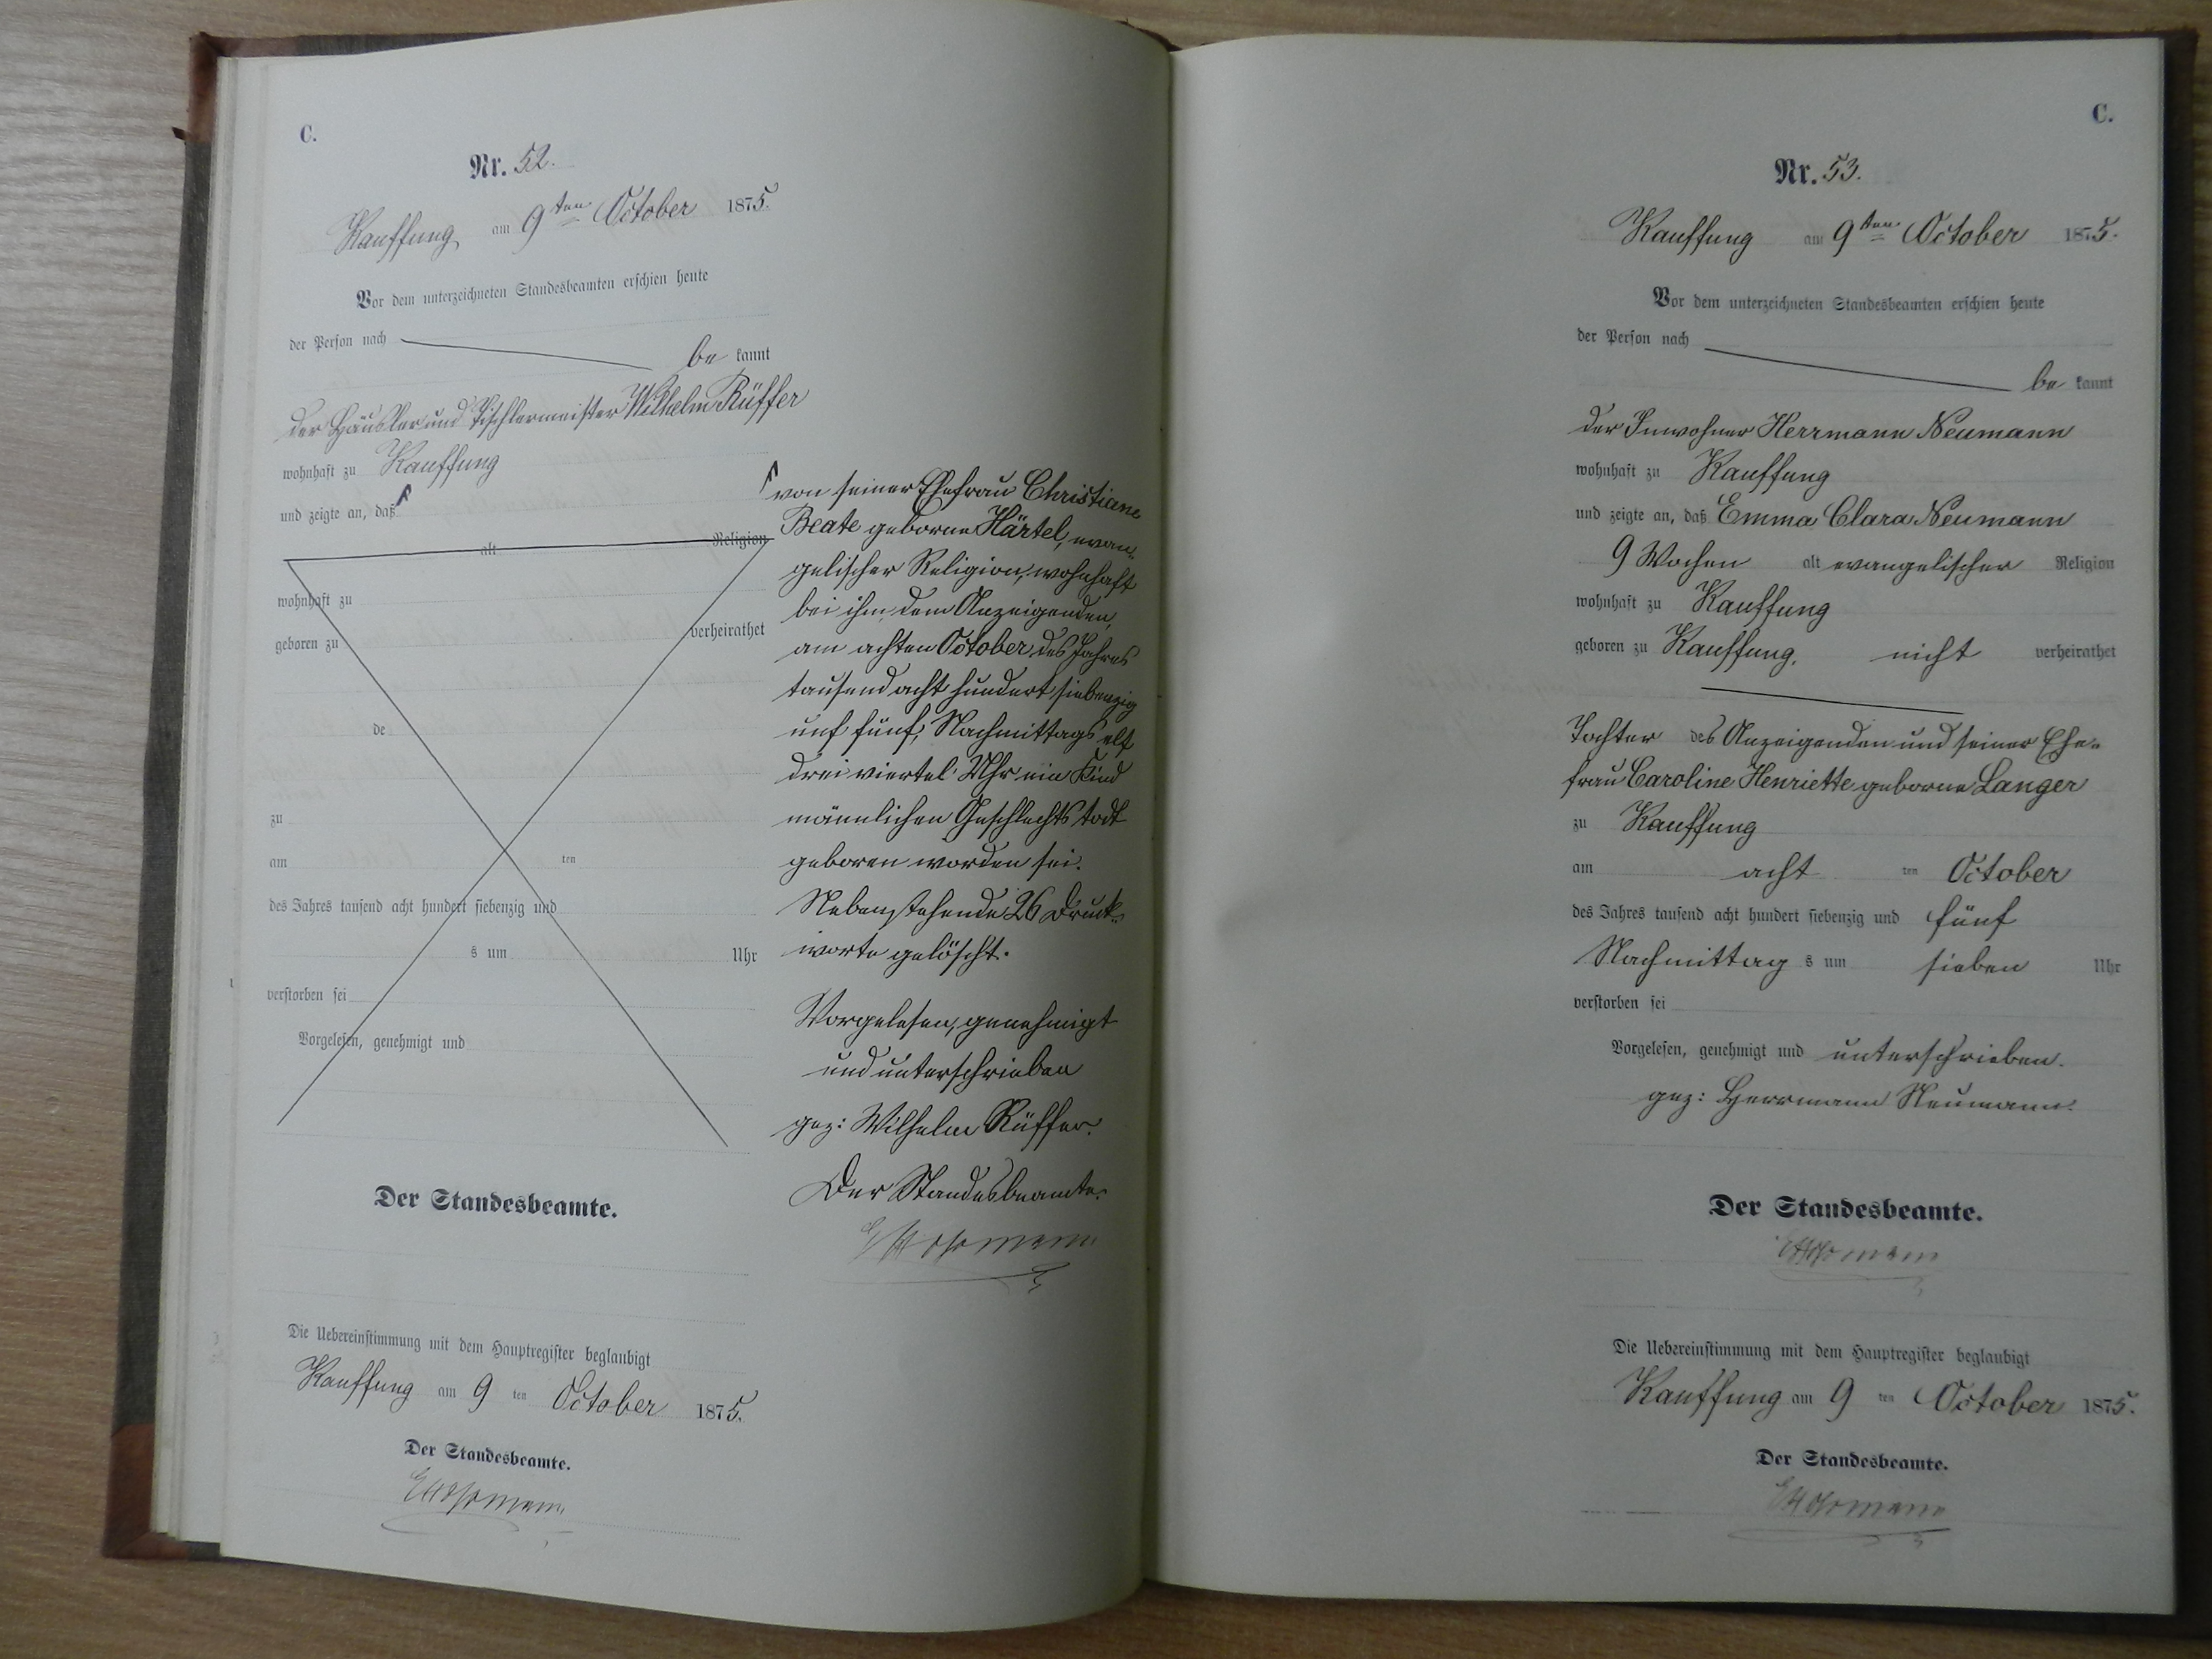 C.
Nr. 52.
Kauffung, am 9ten October 1875.
Vor dem unterzeichneten Standesbeamten erschien heute
der Person nach
be kannt
der Häusler und Tischlermeister Wilhelm Rüffer
wohnhaft zu Kauffung
und zeigte an, daß
alt Religion
wohnhaft zu
geboren zu verheirathet
de
zu
am ten
des Jahres tausend acht hundert siebenzig und
s um Uhr
verstorben sei
Vorgelesen, genehmigt und
von seiner Ehefrau Christiane
Beate geborne Härtel, evan-
gelischer Religion, wohnhaft
bei ihm, dem Anzeigenden,
am achten October des Jahres
tausend acht hundert siebenzig
unf fünf, Nachmittags elf
drei viertel Uhr ein Kind
männlichen Geschlechts todt
geboren worden sei.
Nebenstehende 26 Druck-
worte gelöscht.
Vorgelesen, genehmigt
und unterschrieben
gez: Wilhelm Rüffer.
Der Standesbeamte.
Der Standesbeamte.
Die Uebereinstimmung mit dem Hauptregister beglaubigt
Kauffung am 9 ten October 1875.
Der Standesbeamte.
C.
Nr. 53.
Kauffung am 9ten October 1875.
Vor dem unterzeichneten Standesbeamten erschien heute
der Person nach
be kannt
der Inwohner Herrmann Neumann
wohnhaft zu Kauffung
und zeigte an, daß Emma Clara Neumann
9 Wochen alt evangelischer Religion
wohnhaft zu Kauffung
geboren zu Kauffung, nicht verheirathet
Tochter des Anzeigenden und seiner Ehe-
frau Caroline Henriette geborne Langer
zu Kauffung
am acht ten October
des Jahres tausend acht hundert siebenzig und fünf
Nachmittag s um sieben Uhr
verstorben sei
Vorgelesen, genehmigt und unterschrieben.
gez: Herrmann Neumann.
Der Standesbeamte.
Die Uebereinstimmung mit dem Hauptregister beglaubigt
Kauffung am 9 ten October 1875.
Der Standesbeamte.